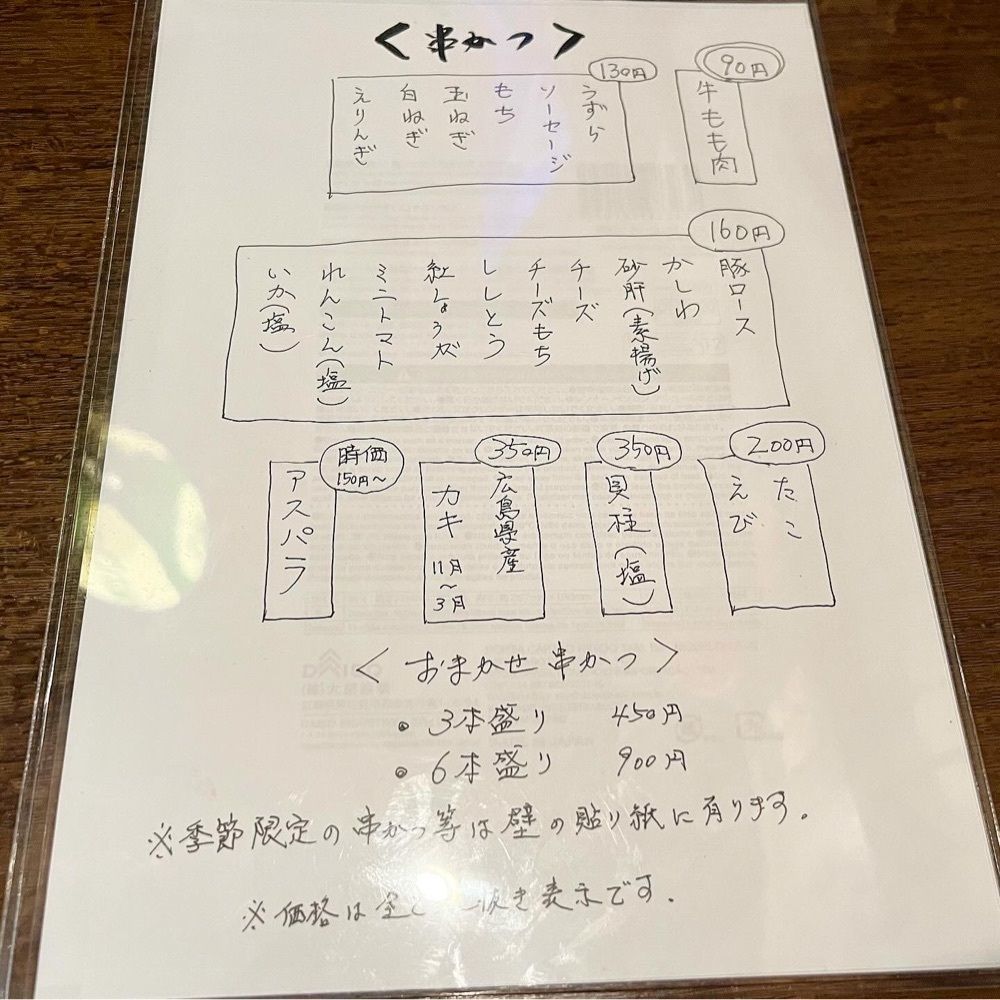 ＜串かつ＞
90円
牛もも肉
130円
うずら
ソーセージ
もち
玉ねぎ
白ねぎ
えりんぎ
160円
豚ロース
かしわ
砂肝(素揚げ)
チーズ
チーズもち
ししとう
紅しょうが
ミニトマト
れんこん(塩)
いか(塩)
200円
たこ
えび
350円
貝柱(塩)
350円
広島県産
カキ 11月～3月
時価
150円～
アスパラ
＜おまかせ串かつ＞
• 3本盛り 450円
• 6本盛り 900円
※季節限定の串かつ等は壁の貼り紙に有ります。
※価格は全て 抜き表示です.